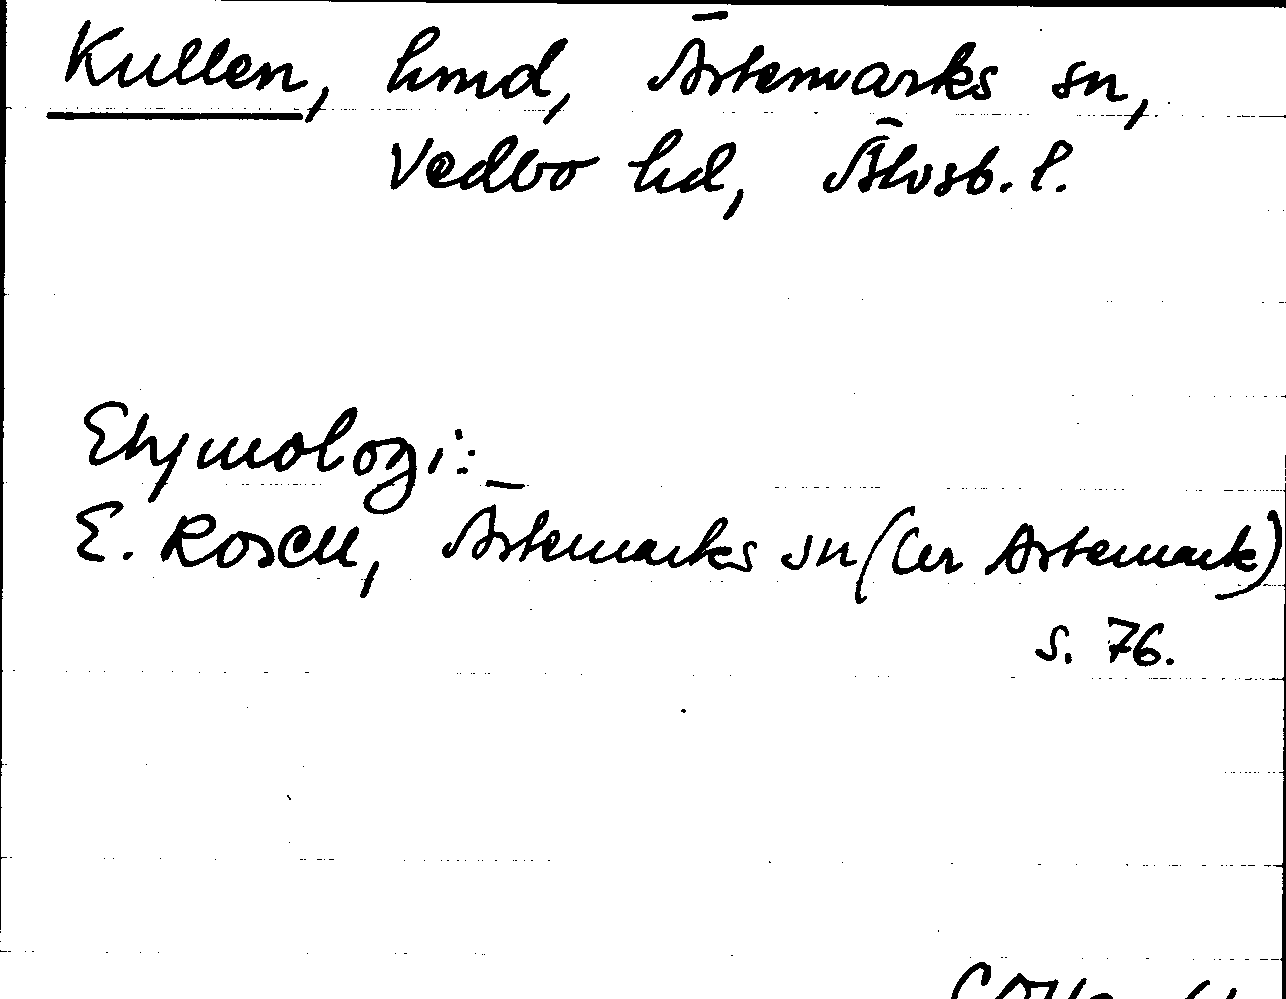 Kullen, hmd, Ärtemarks sn,
Vedbo hd, Älvsb. l.
Etymologi:
E. Rosell, Ärtemarks sn (ur Ärtemark)
s. 76.